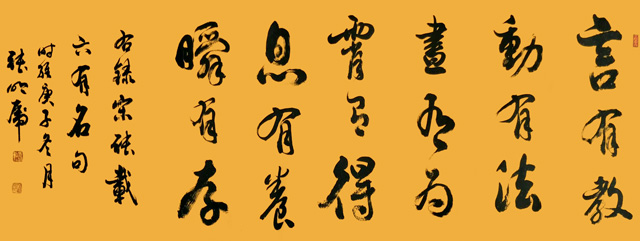 言有教
動有法
晝有為
宵有得
息有養
瞬有存
右錄宋張載
六有名句
時維庚子冬月
張